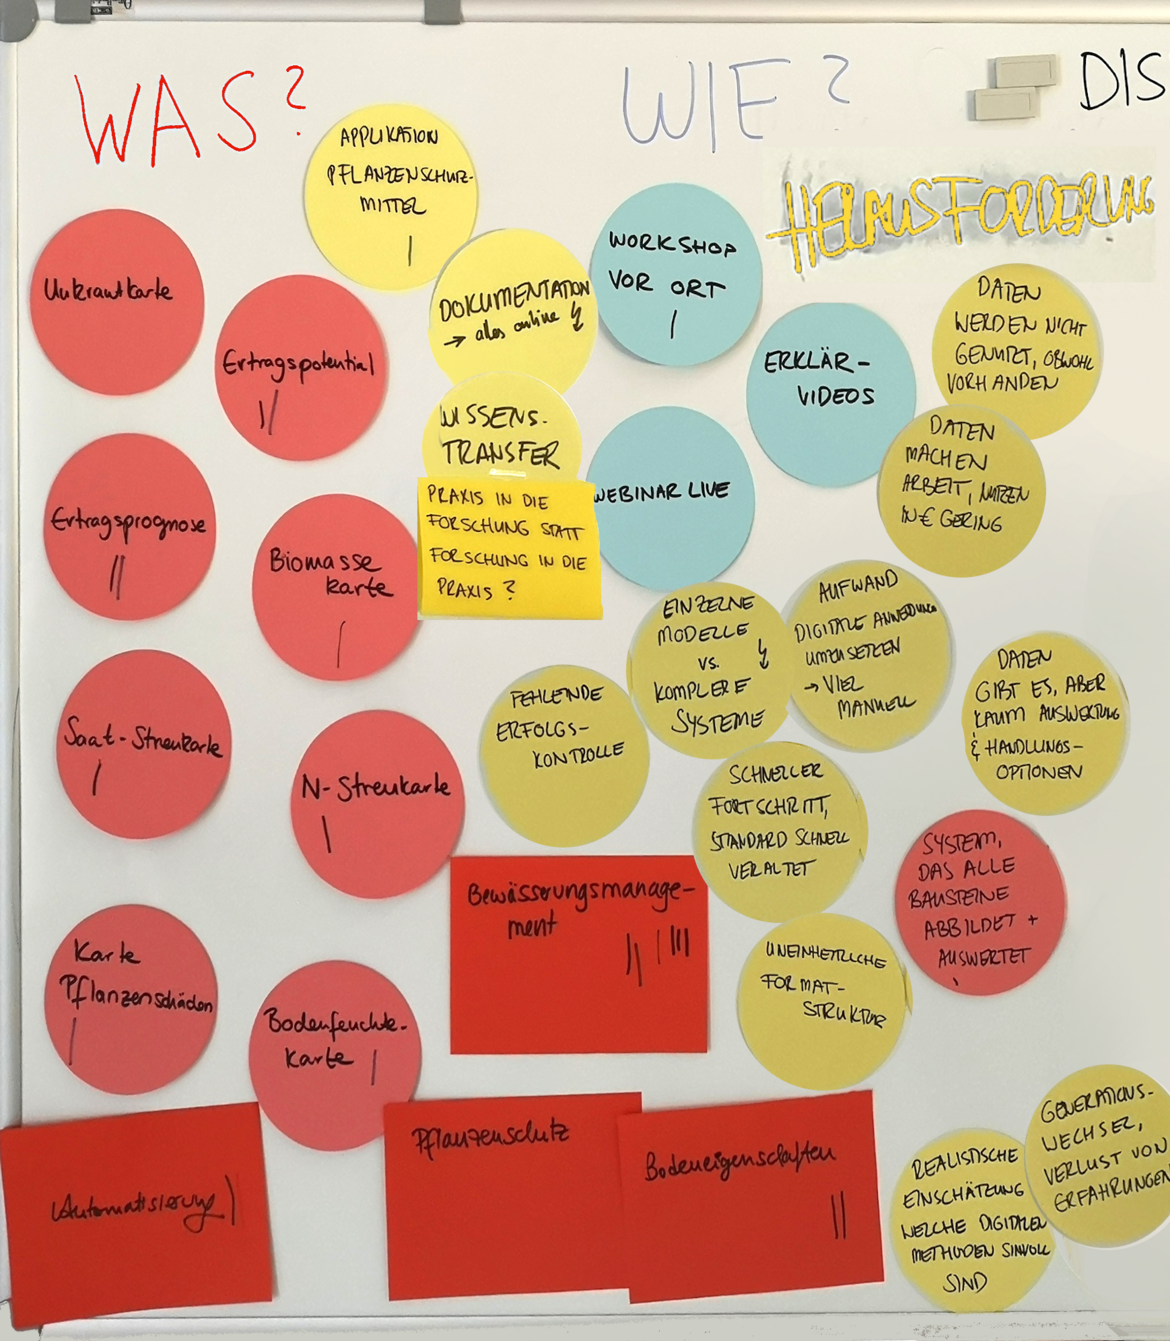 WAS?
WIE?
DIS
HERAUSFORDERUNG
APPLIKATION
PFLANZENSCHUTZ-
MITTEL
Unkrautkarte
Ertragspotential
DOKUMENTATION
→ alles online
WISSENS-
TRANSFER
PRAXIS IN DIE
FORSCHUNG STATT
FORSCHUNG IN DIE
PRAXIS?
Ertragsprognose
Biomasse
karte
Saat-Streukarte
N-Streukarte
Karte
Pflanzenschäden
Bodenfeuchte-
karte
Bewässerungsmanage-
ment
Automatisierung
Pflanzenschutz
Bodeneigenschaften
WORKSHOP
VOR ORT
ERKLÄR-
VIDEOS
WEBINAR LIVE
DATEN
WERDEN NICHT
GENUTZT, OBWOHL
VORHANDEN
DATEN
MACHEN
ARBEIT, NUTZEN
IN € GERING
EINZELNE
MODELLE
VS.
KOMPLEXE
SYSTEME
AUFWAND
DIGITALE ANWENDUNG
UMZUSETZEN
→ VIEL
MANUELL
FEHLENDE
ERFOLGS-
KONTROLLE
DATEN
GIBT ES, ABER
KAUM AUSWERTUNG
& HANDLUNGS-
OPTIONEN
SCHNELLER
FORTSCHRITT,
STANDARD SCHNELL
VERALTET
SYSTEM,
DAS ALLE
BAUSTEINE
ABBILDET +
AUSWERTET
UNEINHEITLICHE
FORMAT-
STRUKTUR
REALISTISCHE
EINSCHÄTZUNG
WELCHE DIGITALEN
METHODEN SINVOLL
SIND
GENERATIONS-
WECHSEL,
VERLUST VON
ERFAHRUNGEN